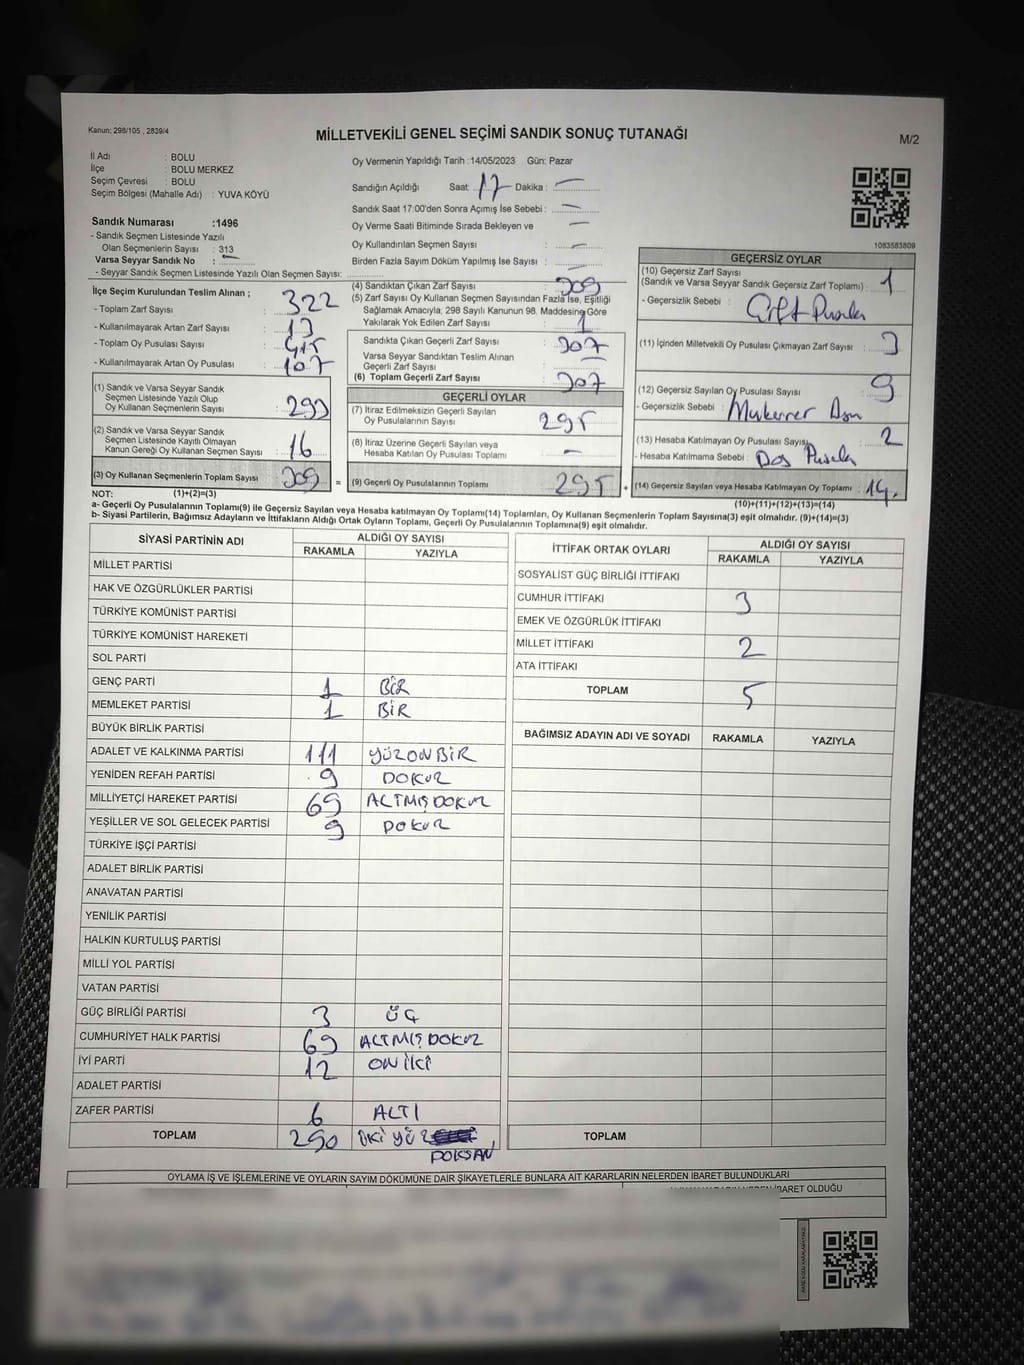 Kanun: 298/105 , 2839/4
MİLLETVEKİLİ GENEL SEÇİMİ SANDIK SONUÇ TUTANAĞI
M/2
İl Adı : BOLU
İlçe : BOLU MERKEZ
Seçim Çevresi : BOLU
Seçim Bölgesi (Mahalle Adı) : YUVA KÖYÜ
Sandık Numarası :1496
- Sandık Seçmen Listesinde Yazılı
Olan Seçmenlerin Sayısı : 313
Varsa Seyyar Sandık No : —
- Seyyar Sandık Seçmen Listesinde Yazılı Olan Seçmen Sayısı:
Oy Vermenin Yapıldığı Tarih :14/05/2023 Gün: Pazar
Sandığın Açıldığı Saat: 17 Dakika : —
Sandık Saat 17:00'den Sonra Açımış İse Sebebi : —
Oy Verme Saati Bitiminde Sırada Bekleyen ve —
Oy Kullandırılan Seçmen Sayısı : —
Birden Fazla Sayım Döküm Yapılmış İse Sayısı : —
1083583809
İlçe Seçim Kurulundan Teslim Alınan ;
- Toplam Zarf Sayısı : 322
- Kullanılmayarak Artan Zarf Sayısı : 13
- Toplam Oy Pusulası Sayısı : 415
- Kullanılmayarak Artan Oy Pusulası : 107
(1) Sandık ve Varsa Seyyar Sandık
Seçmen Listesinde Yazılı Olup
Oy Kullanan Seçmenlerin Sayısı : 293
(2) Sandık ve Varsa Seyyar Sandık
Seçmen Listesinde Kayıtlı Olmayan
Kanun Gereği Oy Kullanan Seçmen Sayısı : 16
(3) Oy Kullanan Seçmenlerin Toplam Sayısı 309
(4) Sandıktan Çıkan Zarf Sayısı : 309
(5) Zarf Sayısı Oy Kullanan Seçmen Sayısından Fazla İse, Eşitliği
Sağlamak Amacıyla; 298 Sayılı Kanunun 98. Maddesine Göre
Yakılarak Yok Edilen Zarf Sayısı : 1
Sandıkta Çıkan Geçerli Zarf Sayısı : 307
Varsa Seyyar Sandıktan Teslim Alınan
Geçerli Zarf Sayısı : —
(6) Toplam Geçerli Zarf Sayısı : 307
GEÇERLİ OYLAR
(7) İtiraz Edilmeksizin Geçerli Sayılan
Oy Pusulalarının Sayısı : 295
(8) İtiraz Üzerine Geçerli Sayılan veya
Hesaba Katılan Oy Pusulası Toplamı : —
= (9) Geçerli Oy Pusulalarının Toplamı : 295 +
GEÇERSİZ OYLAR
(10) Geçersiz Zarf Sayısı
(Sandık ve Varsa Seyyar Sandık Geçersiz Zarf Toplamı) : 1
- Geçersizlik Sebebi : Çift Pusula
(11) İçinden Milletvekili Oy Pusulası Çıkmayan Zarf Sayısı : 3
(12) Geçersiz Sayılan Oy Pusulası Sayısı : 9
- Geçersizlik Sebebi : Mükerrer
(13) Hesaba Katılmayan Oy Pusulası Sayısı : 2
- Hesaba Katılmama Sebebi : Pusula
(14) Geçersiz Sayılan veya Hesaba Katılmayan Oy Toplamı : 14.
NOT: (1)+(2)=(3)
(10)+(11)+(12)+(13)=(14)
a- Geçerli Oy Pusulalarının Toplamı(9) ile Geçersiz Sayılan veya Hesaba katılmayan Oy Toplamı(14) Toplamları, Oy Kullanan Seçmenlerin Toplam Sayısına(3) eşit olmalıdır. (9)+(14)=(3)
b- Siyasi Partilerin, Bağımsız Adayların ve İttifakların Aldığı Ortak Oyların Toplamı, Geçerli Oy Pusulalarının Toplamına(9) eşit olmalıdır.
SİYASİ PARTİNİN ADI ALDIĞI OY SAYISI
RAKAMLA YAZIYLA
MİLLET PARTİSİ
HAK VE ÖZGÜRLÜKLER PARTİSİ
TÜRKİYE KOMÜNİST PARTİSİ
TÜRKİYE KOMÜNİST HAREKETİ
SOL PARTİ
GENÇ PARTİ 1 BİR
MEMLEKET PARTİSİ 1 BİR
BÜYÜK BİRLİK PARTİSİ
ADALET VE KALKINMA PARTİSİ 111 YÜZONBİR
YENİDEN REFAH PARTİSİ 9 DOKUZ
MİLLİYETÇİ HAREKET PARTİSİ 69 ALTMIŞDOKUZ
YEŞİLLER VE SOL GELECEK PARTİSİ 9 DOKUZ
TÜRKİYE İŞÇİ PARTİSİ
ADALET BİRLİK PARTİSİ
ANAVATAN PARTİSİ
YENİLİK PARTİSİ
HALKIN KURTULUŞ PARTİSİ
MİLLİ YOL PARTİSİ
VATAN PARTİSİ
GÜÇ BİRLİĞİ PARTİSİ 3 ÜÇ
CUMHURİYET HALK PARTİSİ 69 ALTMIŞDOKUZ
İYİ PARTİ 12 ONİKİ
ADALET PARTİSİ
ZAFER PARTİSİ 6 ALTI
TOPLAM 290 İKİ YÜZ
DOKSAN
İTTİFAK ORTAK OYLARI ALDIĞI OY SAYISI
RAKAMLA YAZIYLA
SOSYALİST GÜÇ BİRLİĞİ İTTİFAKI
CUMHUR İTTİFAKI 3
EMEK VE ÖZGÜRLÜK İTTİFAKI
MİLLET İTTİFAKI 2
ATA İTTİFAKI
TOPLAM 5
BAĞIMSIZ ADAYIN ADI VE SOYADI RAKAMLA YAZIYLA
TOPLAM
OYLAMA İŞ VE İŞLEMLERİNE VE OYLARIN SAYIM DÖKÜMÜNE DAİR ŞİKAYETLERLE BUNLARA AİT KARARLARIN NELERDEN İBARET BULUNDUKLARI
İBARET OLDUĞU